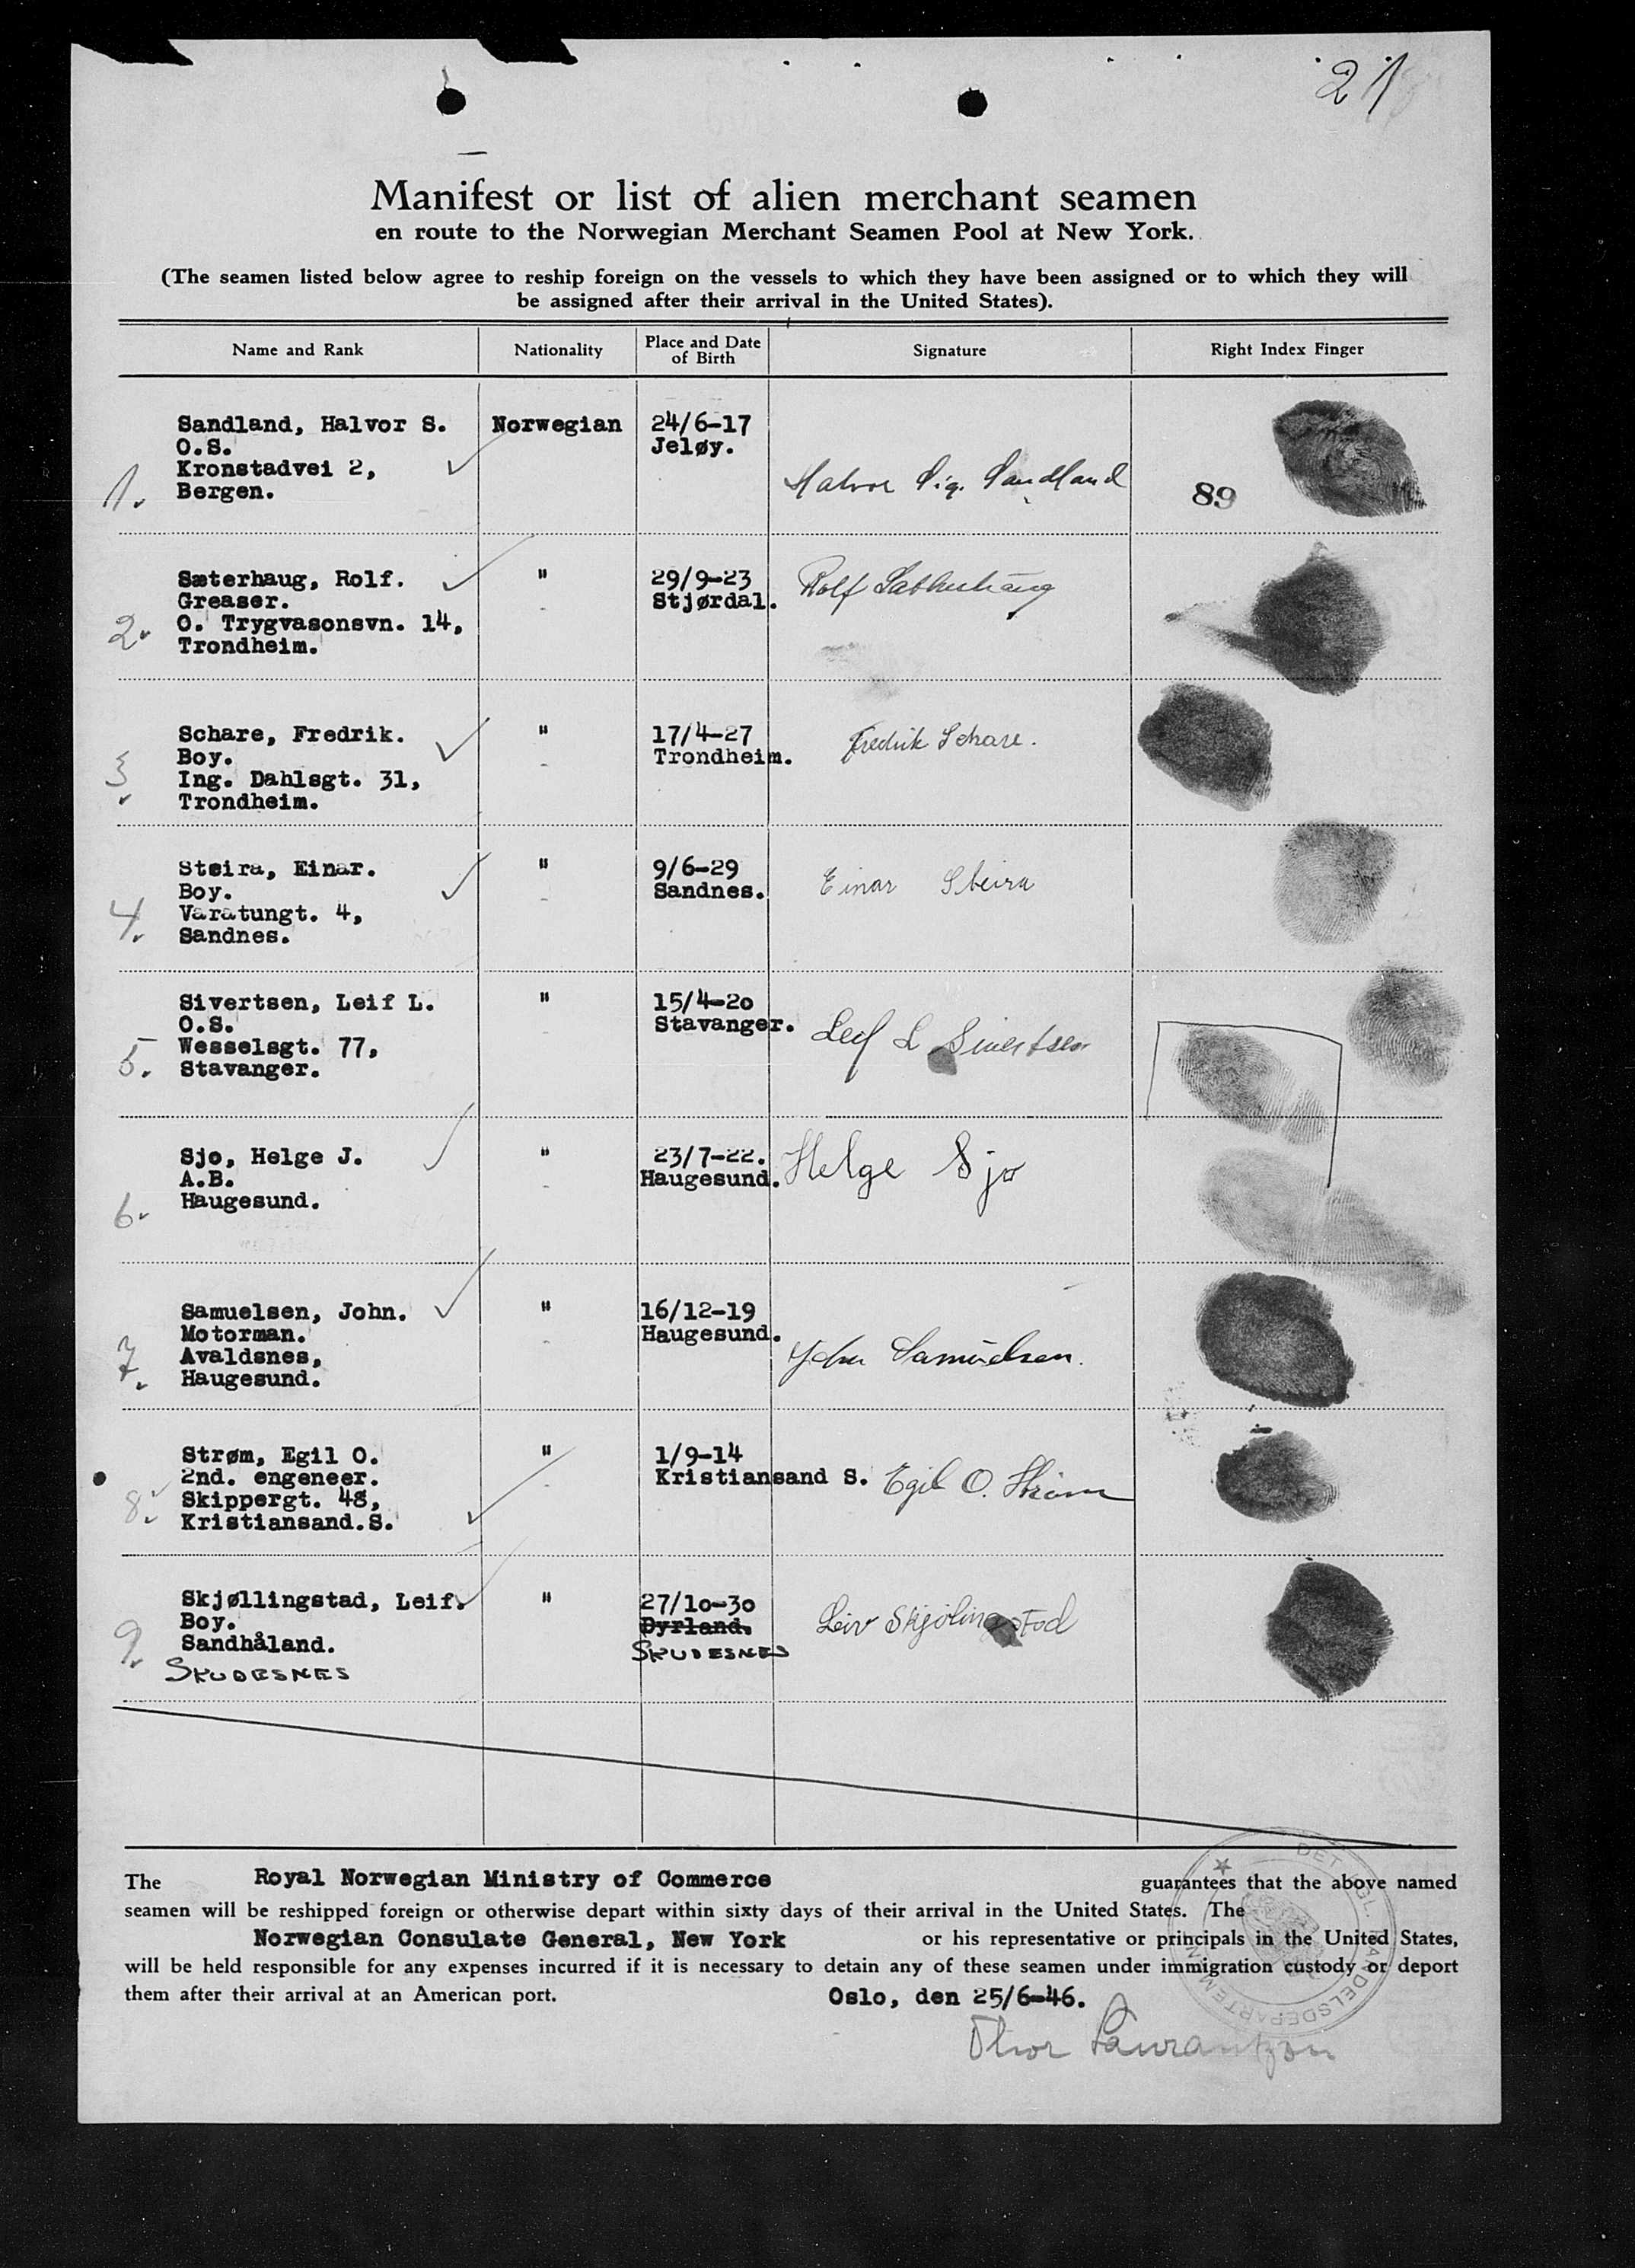 21
Manifest or list of alien merchant seamen
en route to the Norwegian Merchant Seamen Pool at New York.
(The seamen listed below agree to reship foreign on the vessels to which they have been assigned or to which they will
be assigned after their arrival in the United States).
Name and Rank Nationality Place and Date of Birth Signature Right Index Finger
1. Sandland, Halvor S. Norwegian 24/6-17
O.S. Jeløy.
Kronstadvei 2,
Bergen. Halvor Sig. Sandland 89
2. Sæterhaug, Rolf. " 29/9-23 Rolf Sætherhaug
Greaser. Stjørdal.
O. Trygvasonsvn. 14,
Trondheim.
3. Schare, Fredrik. " 17/4-27 Fredrik Schare.
Boy. Trondheim.
Ing. Dahlsgt. 31,
Trondheim.
4. Steira, Einar. " 9/6-29 Einar Steira
Boy. Sandnes.
Varatungt. 4,
Sandnes.
5. Sivertsen, Leif L. " 15/4-20 Leif L Sivertsen
O.S. Stavanger.
Wesselsgt. 77,
Stavanger.
6. Sjo, Helge J. " 23/7-22. Helge Sjo
A.B. Haugesund.
Haugesund.
7. Samuelsen, John. " 16/12-19
Motorman. Haugesund.
Avaldsnes, John Samuelsen.
Haugesund.
8. Strøm, Egil O. " 1/9-14
2nd. engeneer. Kristiansand S. Egil O. Strøm
Skippergt. 48,
Kristiansand.S.
9. Skjøllingstad, Leif. " 27/10-30 Leiv Skjølingstad
Boy. Dyrland.
Sandhåland. SKUDESNES
SKUDESNES
The Royal Norwegian Ministry of Commerce guarantees that the above named
seamen will be reshipped foreign or otherwise depart within sixty days of their arrival in the United States. The
Norwegian Consulate General, New York or his representative or principals in the United States,
will be held responsible for any expenses incurred if it is necessary to detain any of these seamen under immigration custody or deport
them after their arrival at an American port. Oslo, den 25/6-46.
Thor Laurantzon